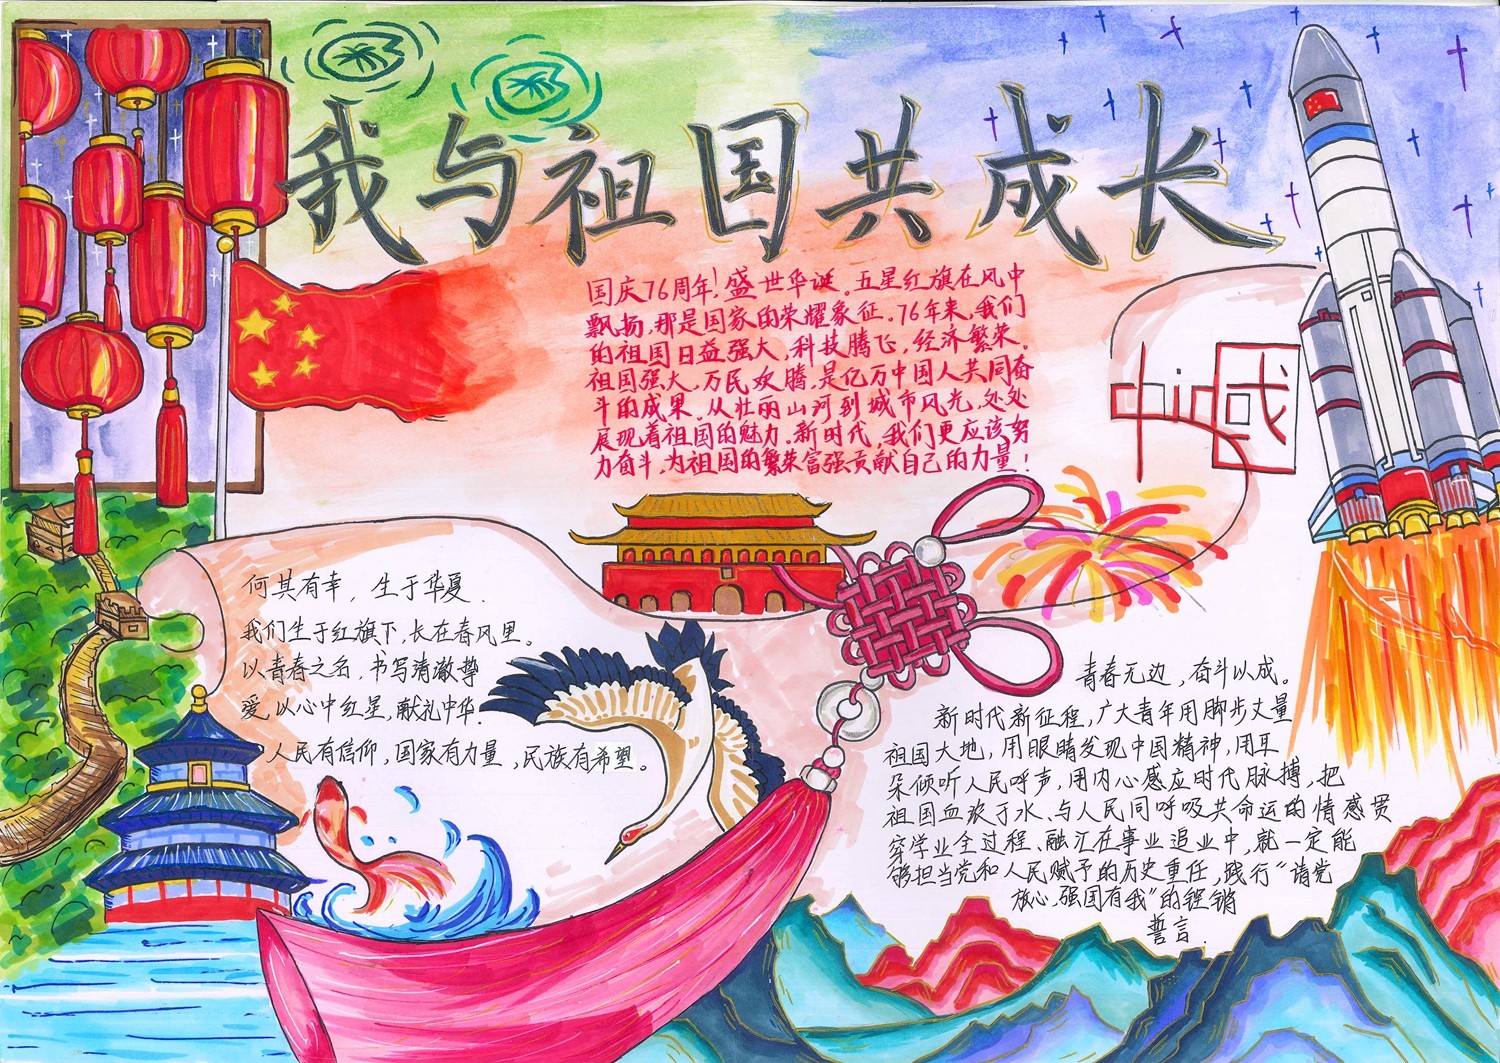 我与祖国共成长
国庆76周年!盛世华诞。五星红旗在风中
飘扬,那是国家的荣耀象征。76年来,我们
的祖国日益强大,科技腾飞,经济繁荣。
祖国强大,万民欢腾,是亿万中国人共同奋
斗的成果。从壮丽山河到城市风光,处处
展现着祖国的魅力。新时代,我们更应该努
力奋斗,为祖国的繁荣富强贡献自己的力量!
何其有幸,生于华夏.
我们生于红旗下,长在春风里。
以青春之名,书写清澈挚
爱,以心中红星,献礼中华.
人民有信仰,国家有力量,民族有希望。
青春无边,奋斗以成。
新时代新征程,广大青年用脚步丈量
祖国大地,用眼睛发现中国精神,用耳
朵倾听人民呼声,用内心感应时代脉搏,把
祖国血浓于水、与人民同呼吸共命运的情感贯
穿学业全过程、融汇在事业追业中,就一定能
够担当党和人民赋予的历史重任,践行“请党
放心,强国有我”的铿锵
誓言.